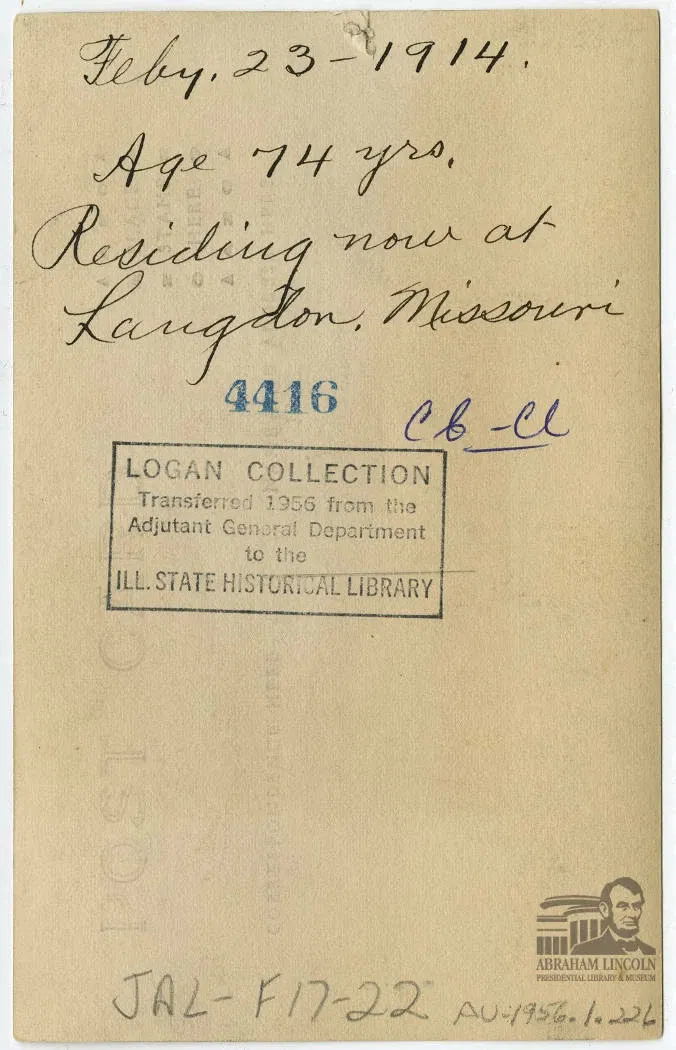 Feby. 23-1914.
Age 74 yrs.
Residing now at
Langdon, Missouri
4416
Cb-Cl
LOGAN COLLECTION
Transferred 1956 from the
Adjutant General Department
to the
ILL. STATE HISTORICAL LIBRARY
POST C
CORRESPONDENCE HERE
ABRAHAM LINCOLN
PRESIDENTIAL LIBRARY & MUSEUM
JAL-F17-22
AV-1956.1.226